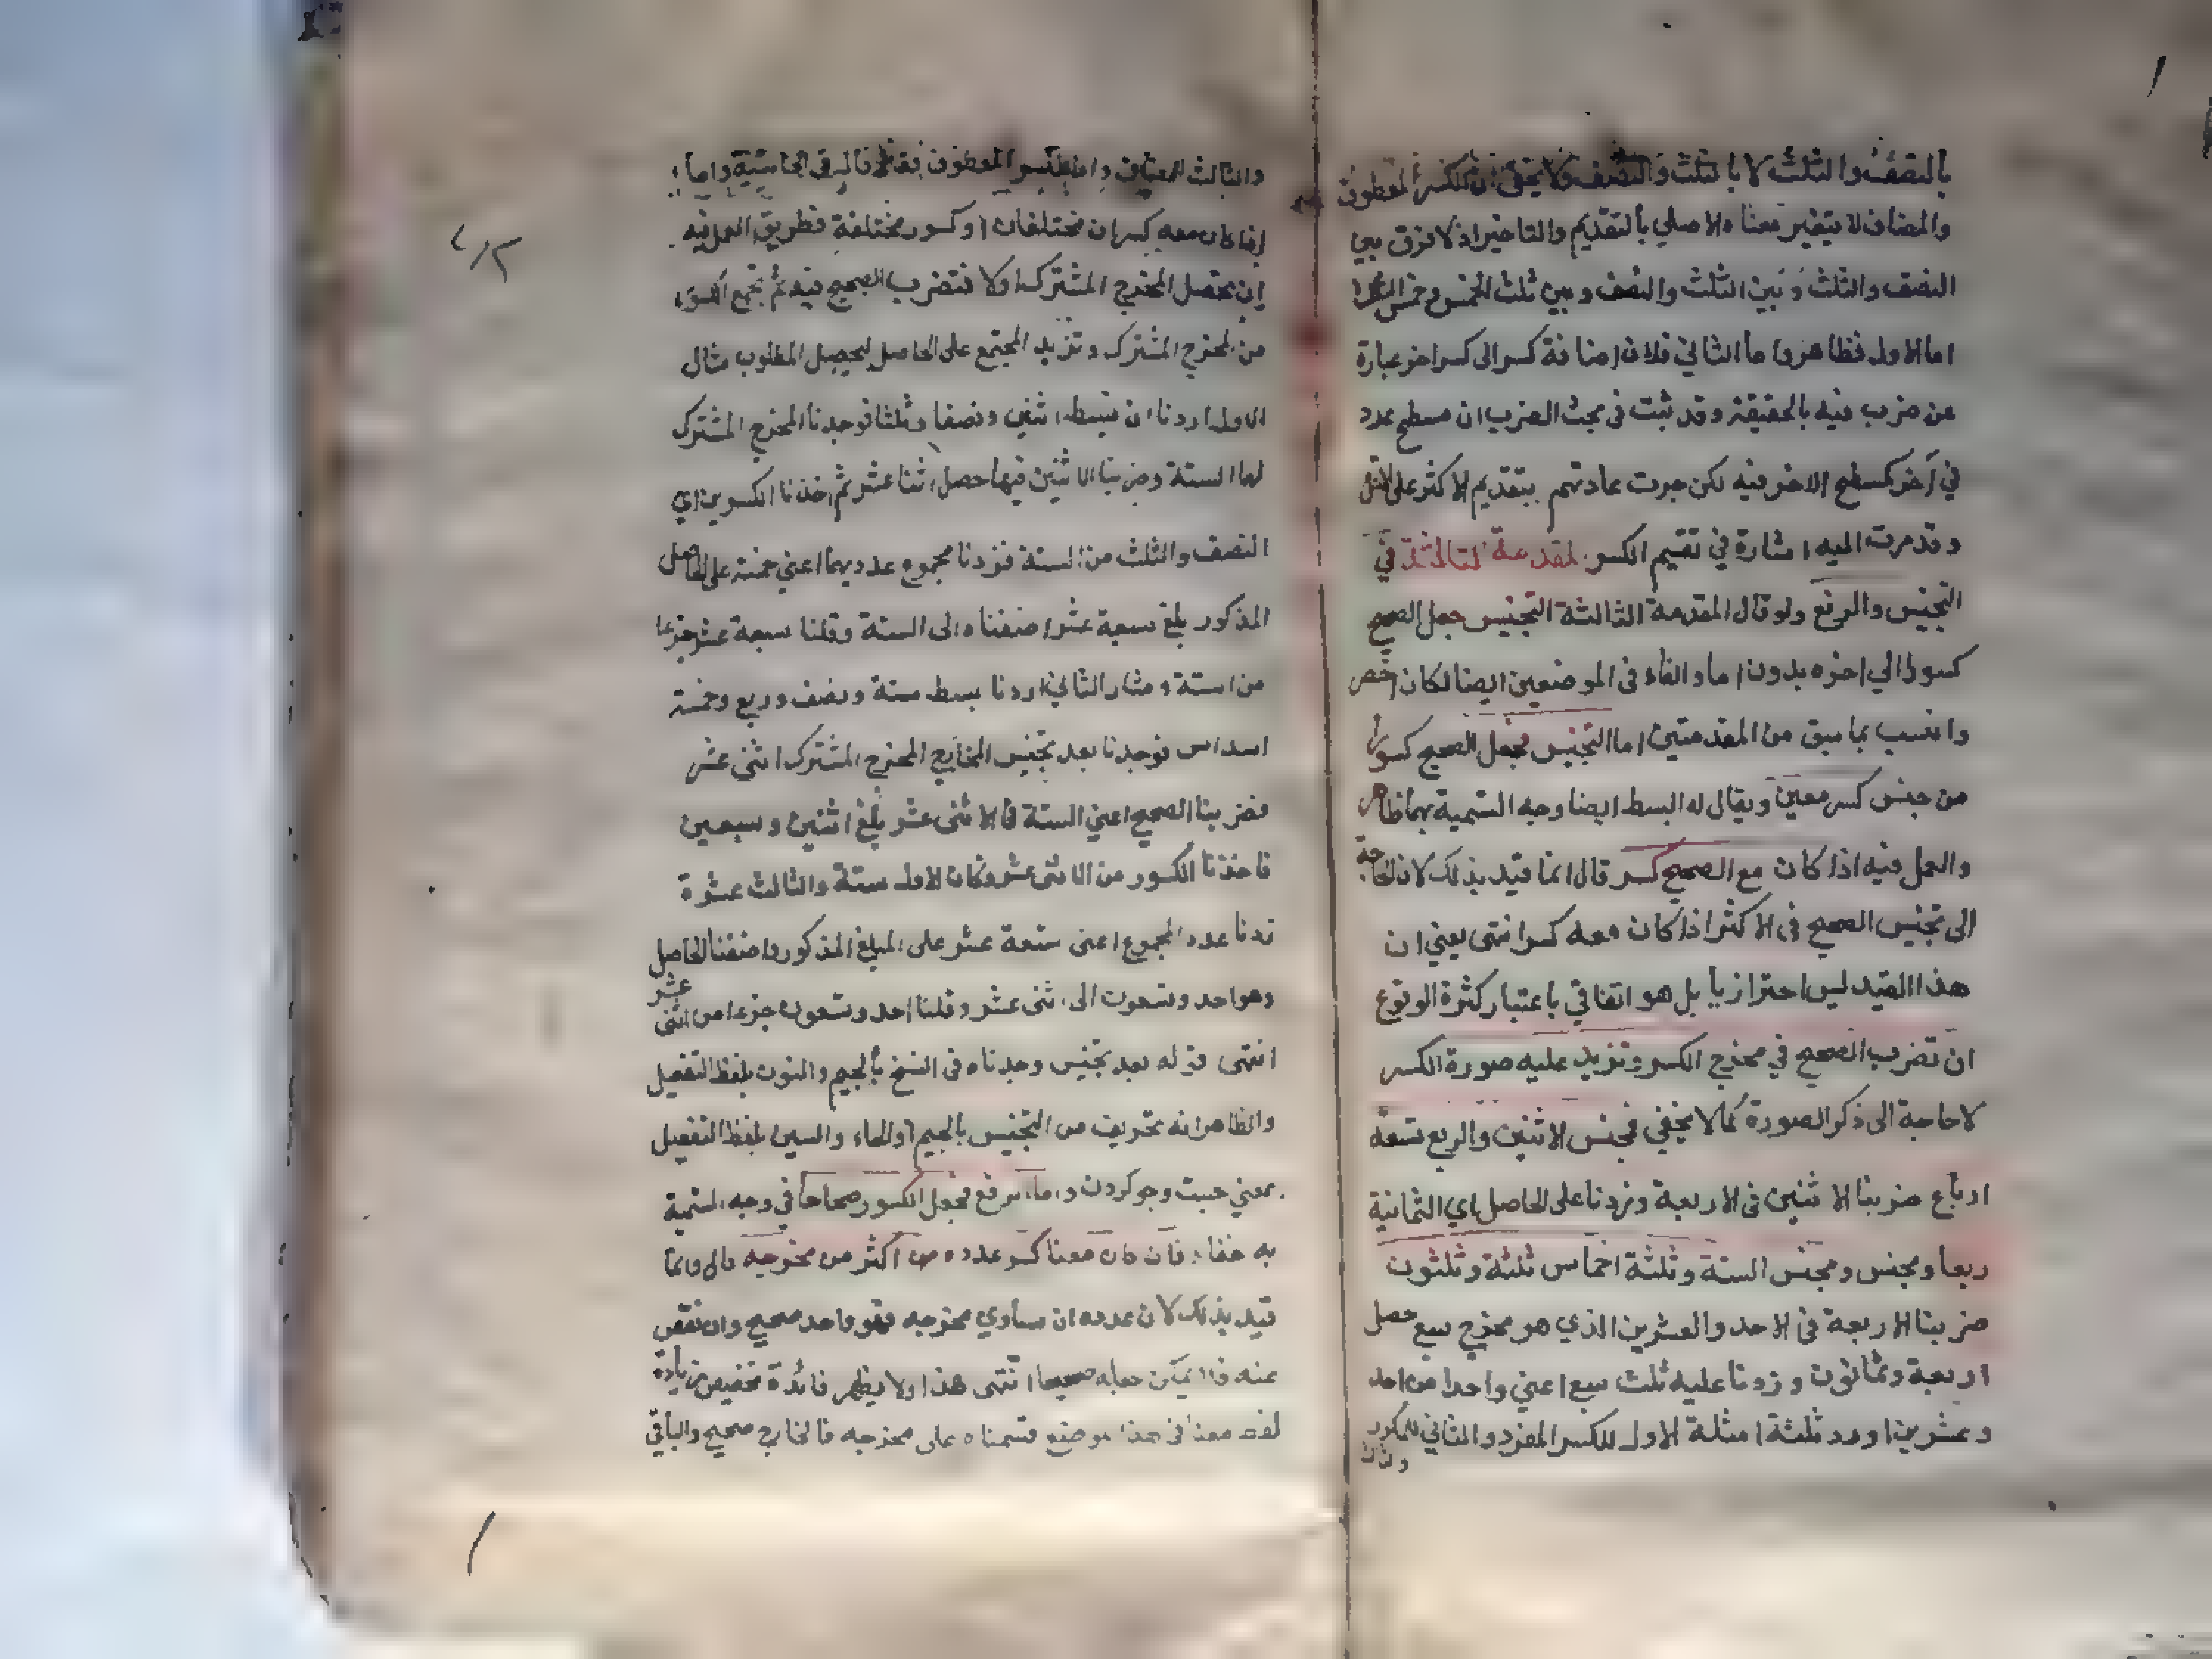 بالنصف والثلث لا بالثلث والنصف ولا يخفى ان الكسر المعطوف
والمضاف لا يتغير معناه الاصلي بالتقديم والتاخير اذ لا فرق بين
النصف والثلث وبين الثلث والنصف وبين ثلث الخمس وخمس الثلث
اما الاول فظاهر واما الثاني فلان اضافة كسر الى كسر اخر عبارة
عن ضرب فيه بالحقيقة وقد ثبت في مبحث الضرب ان مسطح عدد
في آخر كمسطح الاخر فيه لكن جرت عادتهم بتقديم الاكثر على الاقل
وقد مرت اليه اشارة في تقسيم الكسر المقدمة الثالثة في
التجنيس والرفع ولو قال المقدمة الثالثة التجنيس جعل الصحيح
كسورا الى اخره بدون اما والفاء في الموضعين ايضا لكان اخصر
وانسب بما سبق من المقدمتين اما التجنيس فجعل الصحيح كسورا
من جنس كسر معين ويقال له البسط ايضا وجه التسمية بهما ظاهر
والعمل فيه اذا كان مع الصحيح كسر قال انما قيد بذلك لان الحاجة
الى تجنيس الصحيح في الاكثر اذا كان معه كسر انتهى يعني ان
هذا القيد ليس احترازيا بل هو اتفاقي باعتبار كثرة الوقوع
ان تضرب الصحيح في مخرج الكسر وتزيد عليه صورة الكسر
لا حاجة الى ذكر الصورة كما لا يخفى فمجنس الاثنين والربع تسعة
ارباع ضربنا الاثنين في الاربعة وزدنا على الحاصل اي الثمانية
ربعا ومجنس ومجنس الستة وثلثة اخماس ثلثة وثلثون
ضربنا الاربعة في الاحد والعشرين الذي هو مخرج سبع حصل
اربعة وثمانون وزدنا عليه ثلث سبع اعني واحدا من احد
وعشرين اورد ثلثة امثلة الاول للكسر المفرد والثاني للمكرر
والثالث
والثالث للمضاف واما الكسر المعطوف فقال في الحاشية واما
اذا كان معه كسران مختلفان او كسور مختلفة فطريق العمل فيه
ان تحصل المخرج المشترك اولا فتضرب الصحيح فيه ثم تجمع الكسور
من المخرج المشترك وتزيد المجتمع على الحاصل ليحصل المطلوب مثال
الاول اردنا ان نبسط اثنين ونصفا وثلثا فوجدنا المخرج المشترك
لهما الستة وضربنا الاثنين فيها حصل اثنا عشر ثم اخذنا الكسرين اي
النصف والثلث من الستة فزدنا مجموع عدديهما اعني خمسة على الحاصل
المذكور بلغ سبعة عشر اضفناه الى الستة وقلنا سبعة عشر جزءا
من ستة ومثال الثاني اردنا بسط ستة ونصف وربع وخمسة
اسداس فوجدنا بعد تجنيس المخارج المخرج المشترك اثنى عشر
فضربنا الصحيح اعني الستة في الاثنى عشر بلغ اثنين وسبعين
فاخذنا الكسور من الاثنى عشر وكان الاول ستة والثالث عشرة
زدنا عدد المجموع اعني تسعة عشر على المبلغ المذكور واضفنا الحاصل
وهو احد وتسعون الى اثنى عشر وقلنا احد وتسعون جزءا من اثنى عشر
انتهى قوله بعد تجنيس وجدناه في النسخ بالجيم والنون بلفظ التفعيل
والظاهر انه تحريف من التجسس بالجيم او الحاء والسين بلفظ التفعيل
بمعنى جست وجو كردن واما الرفع فجعل الكسور صحاحا في وجه التسمية
به خفاء فان كان معنا كسر عدده اكثر من مخرجه قال وانما
قيد بذلك لان عدده ان ساوى مخرجه فهو واحد صحيح وان نقص
عنه فلا يمكن جعله صحيحا انتهى هذا ولا يظهر فائدة تخصيص زيادة
لفظ معنا في هذا موضع قسمناه على مخرجه فالخارج صحيح والباقي